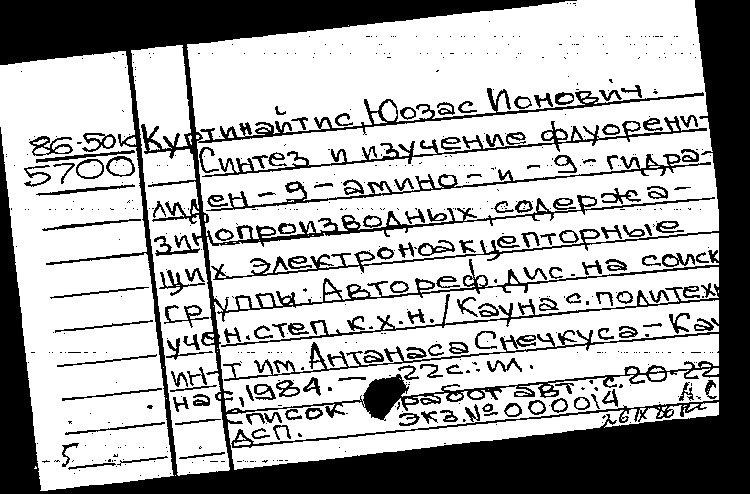 86-50к
5700
Куртинайтис, Юозас Ионович.
Синтез и изучение флуорени-
лиден-9-амино- и -9-гидра-
зинопроизводных, содержа-
щих электроноакцепторные
группы: Автореф. дис. на соиск
учен. степ. к.х.н. / Каунас. политехн
ин-т им. Антанаса Снечкуса.- Кау
нас, 1984. - 22 с.: ил.
Список работ авт.: с. 20-22
ДСП. Экз. № 000014
А.С
5